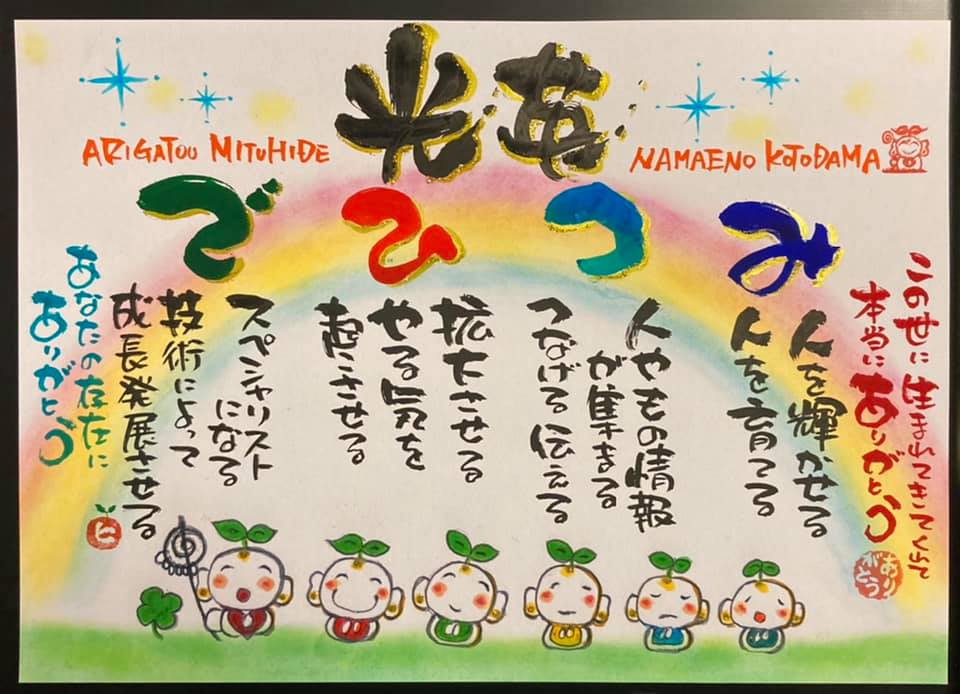 光英
ARIGATOU MITUHIDE
NAMAENO KOTODAMA
みつひで
この世に生まれてきてくれて
本当にありがとう
ありがとう
人を輝かせる
人を育てる
人やもの情報
が集まる
つなげる伝える
拡大させる
やる気を
起こさせる
スペシャリスト
になる
技術によって
成長発展させる
あなたの存在に
ありがとう
ヒ